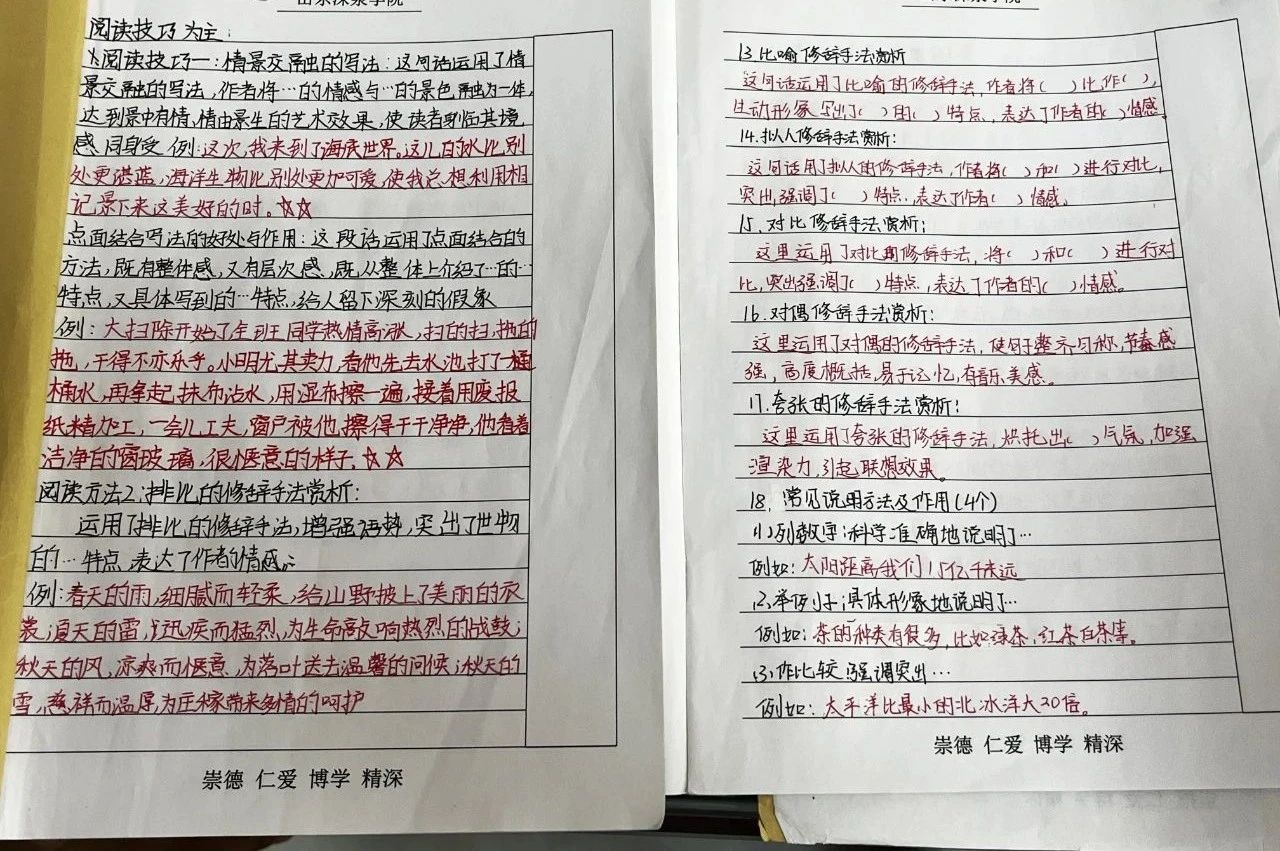 阅读技巧为主:
1阅读技巧一:情景交融的写法:这句话运用了情
景交融的写法,作者将…的情感与…的景色融为一体,
达到景中有情,情由景生的艺术效果,使读者到临其境,
感同身受 例:这次,我来到了海底世界。这儿的水比别
处更湛蓝,海洋生物比别处更加可爱,使我总想利用相
记录下来这美好的时。☆☆
点面结合写法的好处与作用:这段话运用了点面结合的
方法,既有整体感,又有层次感,既从整体上介绍了…的…
特点,又具体写到的…特点,给人留下深刻的假象
例:大扫除开始了全班同学热情高涨,扫的扫,拖的
拖,干得不亦乐乎。小明尤其卖力,看他先去水池打了一桶
桶水,再拿起抹布沾水,用湿布擦一遍,接着用废报
纸精加工,一会儿工夫,窗户被他擦得干干净净,他看着
洁净的窗玻璃,很惬意的样子。☆☆
阅读方法2:排比的修辞手法赏析:
运用了排比的修辞手法,增强语势,突出了世物
的…特点,表达了作者的情感。
例:春天的雨,细腻而轻柔,给山野披上了美丽的衣
裳;夏天的雷,迅疾而猛烈,为生命敲响热烈的战鼓;
秋天的风,凉爽而惬意,为落叶送去温馨的问候;秋天的
雪,慈祥而温厚,为庄稼带来多情的呵护
崇德 仁爱 博学 精深
13.比喻修辞手法赏析
这句话运用了比喻的修辞手法,作者将( )比作( ),
生动形象写出了( )的( )特点,表达了作者的( )情感
14.拟人修辞手法赏析:
这句话用了拟人的修辞手法,作者将( )和( )进行对比,
突出,强调了( )特点,表达了作者( )情感。
15.对比修辞手法赏析:
这里运用了对比的修辞手法,将( )和( )进行对
比,突出强调了( )特点,表达了作者的( )情感。
16.对偶修辞手法赏析:
这里运用了对偶的修辞手法,使句子整齐匀称,节奏感
强,高度概括,易于记忆,有音乐美感。
17.夸张的修辞手法赏析:
这里运用了夸张的修辞手法,烘托出( )气氛,加强
渲染力,引起联想效果。
18.常见说明方法及作用(4个)
(1)列数字:科学准确地说明了…
例如:太阳距离我们1.5亿千米远
(2)举例子:具体形象地说明了…
例如:茶的种类有很多,比如绿茶,红茶白茶等。
(3)作比较 强调突出…
例如:太平洋比最小的北冰洋大20倍。
崇德 仁爱 博学 精深